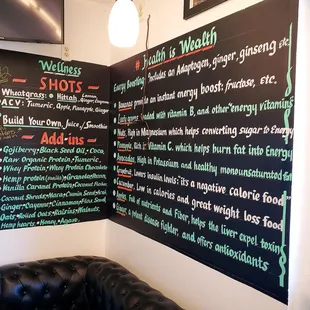 Wellness
SHOTS
Wheatgrass Hittah
ACV: Turmeric, Apple
Build Your Own Juice/Smoothie
Add-ins
Gojiberry Black Seed Oil Coco
Raw Organic Protein Turmeric
Whey Protein
Hemp protein
Vanilla Caramel Protein Coconut
Coconut Shreds
Ginger Cayenne Cinnamon Flax Seed
Oats Rolled Oats Raisins Walnuts
Hemp hearts Honey Agave
Health is Wealth
Energy Boosting Includes an Adaptogen, ginger, ginseng etc.
Bananas provide an instant energy boost: fructose, etc.
loaded with vitamin B, and other energy vitamins
High in Magnesium which helps converting sugar to Energy
Pumpkin, Rich in Vitamin C, which helps burn fat into Energy
Avocados, High in Potassium and healthy monounsaturated fat
Lowers insulin levels: it's a negative calorie food
Cucumber, Low in calories and great weight loss food
Full of nutrients and Fiber, helps the liver expel toxins
a plant disease fighter, and offers antioxidants